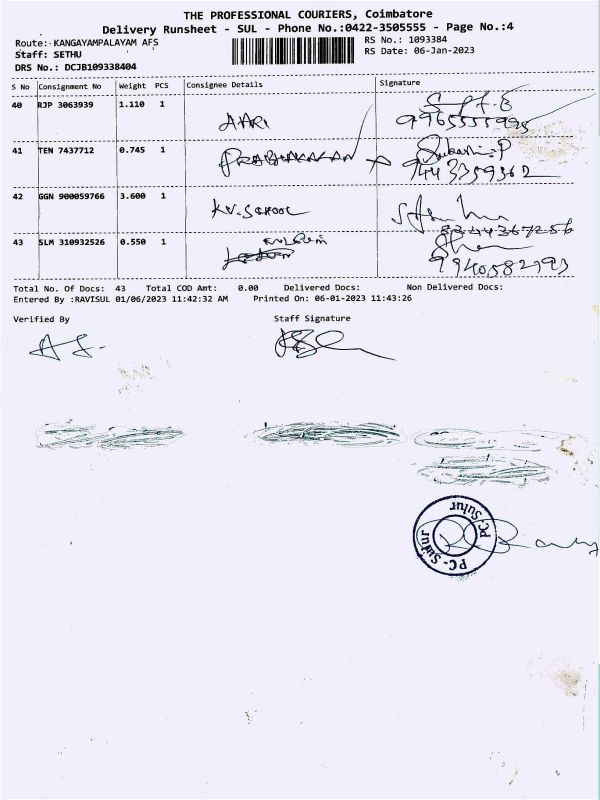 THE PROFESSIONAL COURIERS, Coimbatore
Delivery Runsheet - SUL - Phone No.:0422-3505555 - Page No.:4
Route: KANGAYAMPALAYAM AFS RS No.: 1093384
Staff: SETHU RS Date: 06-Jan-2023
DRS No.: DCJB109338404
S No Consignment No Weight PCS Consignee Details Signature
40 RJP 3063939 1.110 1 AARI
9965555995
41 TEN 7437712 0.745 1 PRABHAKARAN Subashini P
9443359362
42 GGN 900059766 3.600 1 K.V. SCHOOL
8344367256
43 SLM 310932526 0.550 1
9940582793
Total No. Of Docs: 43 Total COD Amt: 0.00 Delivered Docs: Non Delivered Docs:
Entered By :RAVISUL 01/06/2023 11:42:32 AM Printed On: 06-01-2023 11:43:26
Verified By Staff Signature
PC-Sulur
PC-Sulur